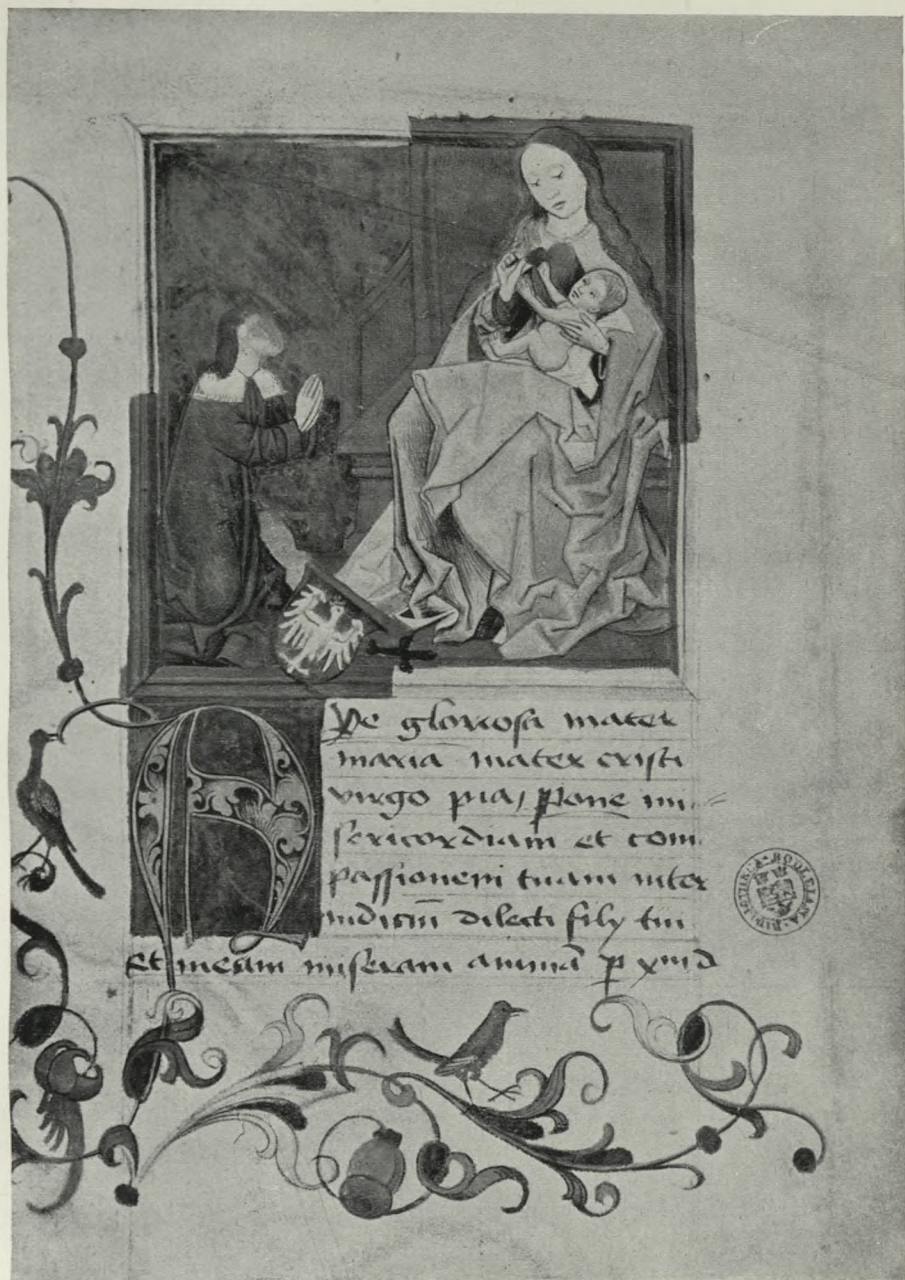 AVe gloriosa mater
maria mater cristi
virgo pia, Pone mi=
sericordiam et com
passionem tuam inter
iudiciū dilecti filÿ tui
Et meam miseram animā
BIBLIOTHECA · BODLEIANA